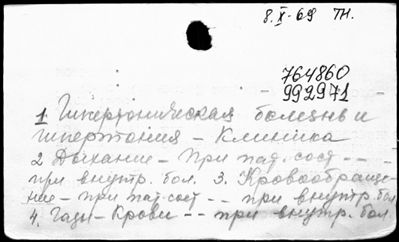 8.X-69 ТН.
764860
992971
1 Гипертоническая болезнь и
гипертония - Клиника
2 Дыхание - При пат. сост - -
при внутр. бол. 3. Кровообраще-
ние - при пат. сост - - при внутр. бол
4. Газы - Крови - - при внутр. бол.